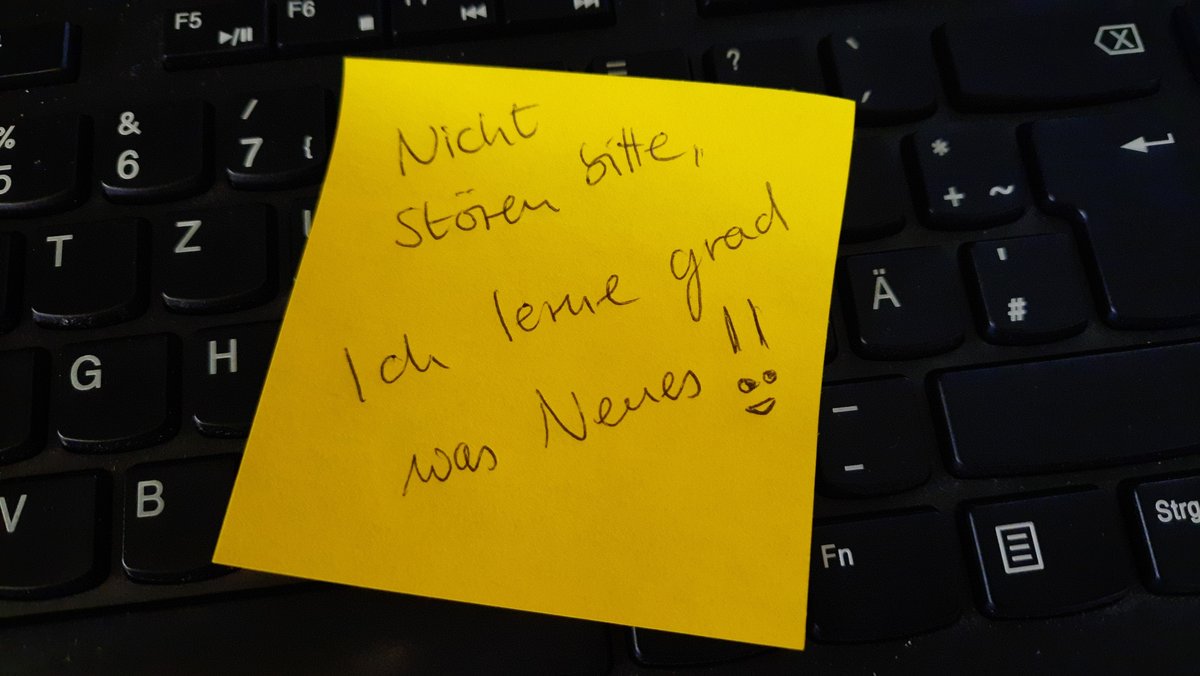 Nicht
stören bitte,,
Ich lerne grad
was Neues !!
F5
F6
%
5
&
6
/
7 {
=
?
`
*
+ ~
T
Z
Ä
'
#
G
H
V
B
Fn
Strg